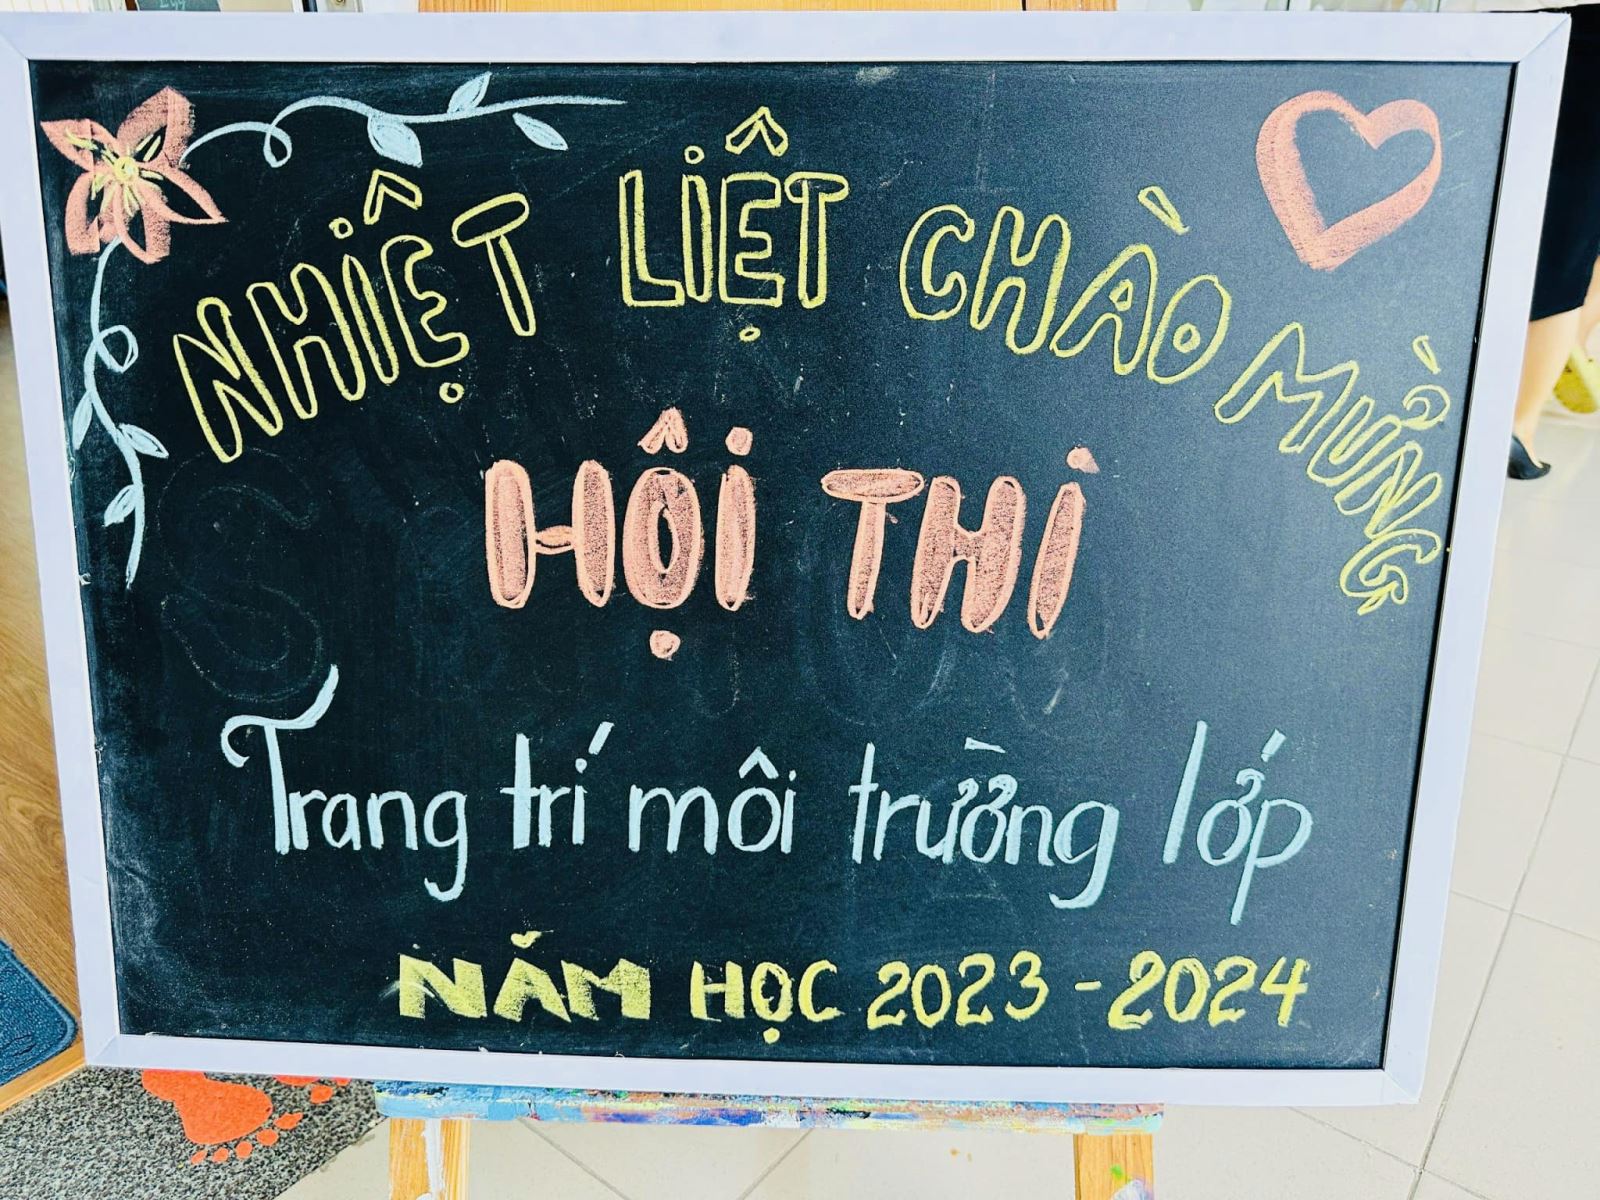 NHIỆT LIỆT CHÀO MỪNG
HỘI THI
Trang trí môi trường lớp
NĂM HỌC 2023 - 2024